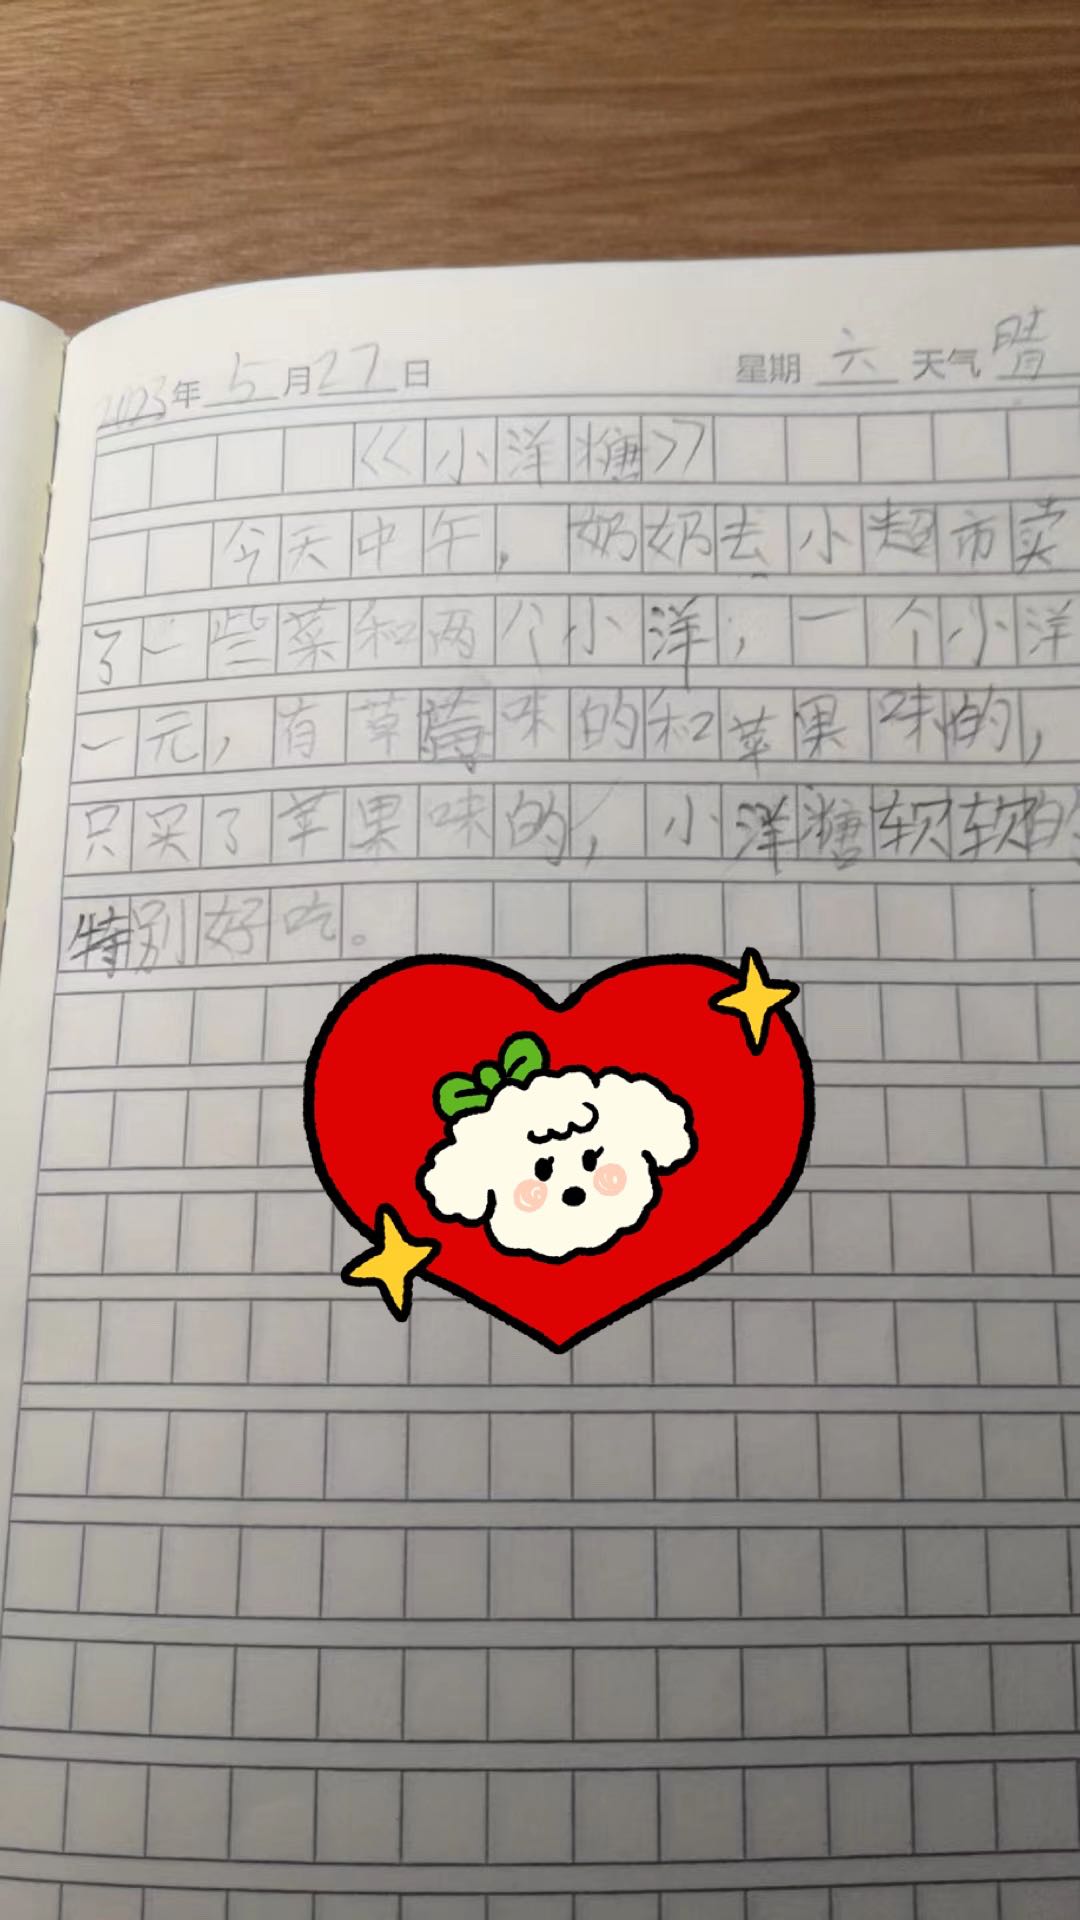 2023年5月27日 星期六 天气晴
《小洋糖》
今天中午，奶奶去小超市卖
了一些菜和两个小洋，一个小洋
一元，有草莓味的和苹果味的，
只买了苹果味的，小洋糖软软的
特别好吃。